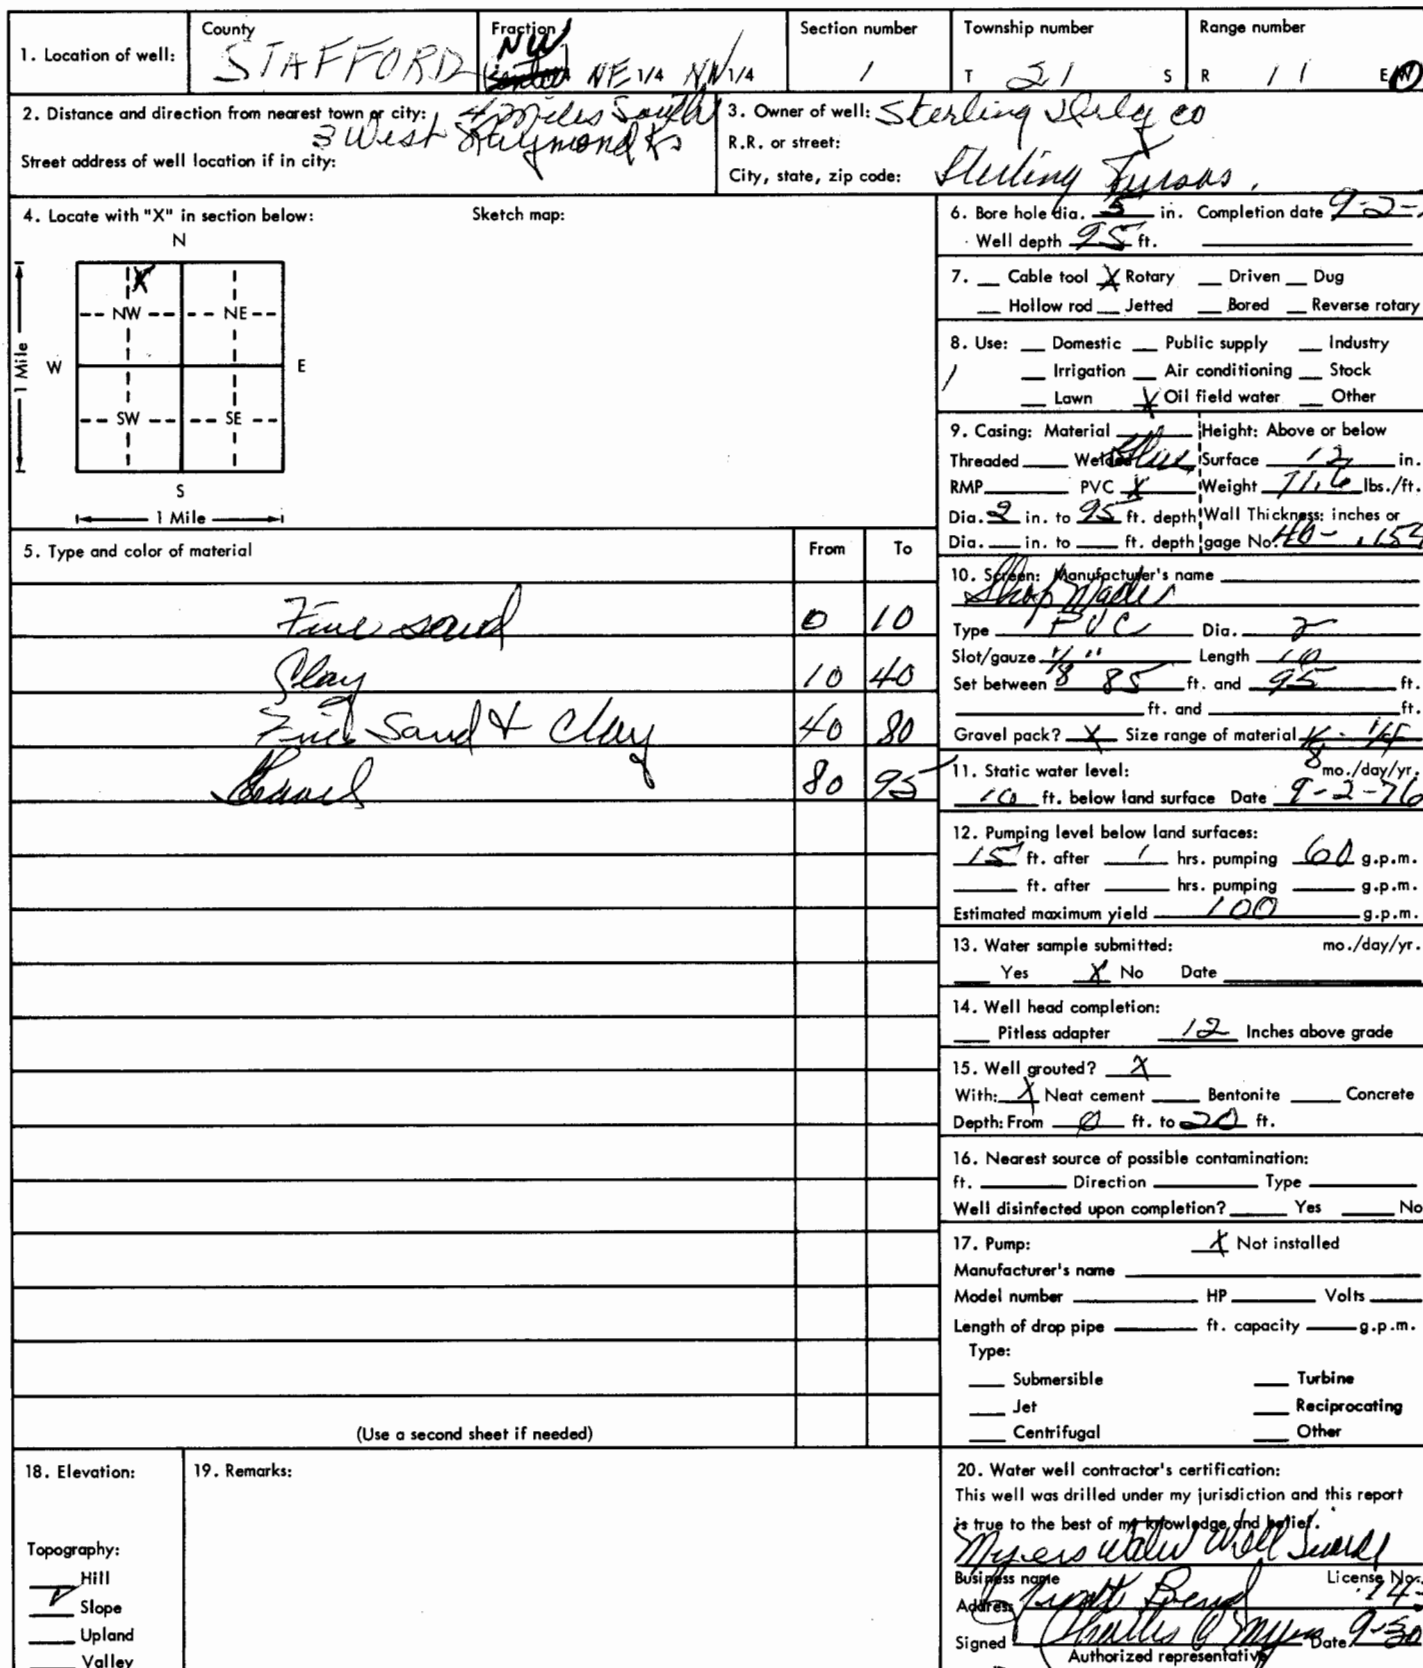 1. Location of well:
County
STAFFORD
Fraction
NW
NE 1/4 NW 1/4
Section number
1
Township number
T 21 S
Range number
R 11 E W
2. Distance and direction from nearest town or city: 4 Miles South
3 West Raymond Ks
Street address of well location if in city:
3. Owner of well: Sterling Drlg co
R.R. or street:
City, state, zip code: Sterling Kansas.
4. Locate with "X" in section below:
Sketch map:
N
X
NW
NE
W
E
1 Mile
SW
SE
S
1 Mile
5. Type and color of material
From
To
Fine sand 0 10
Clay 10 40
Fine Sand & Clay 40 80
Gravel 80 95
(Use a second sheet if needed)
6. Bore hole dia. 5 in. Completion date 9-2-
Well depth 95 ft.
7. Cable tool X Rotary Driven Dug
Hollow rod Jetted Bored Reverse rotary
8. Use: Domestic Public supply Industry
Irrigation Air conditioning Stock
Lawn X Oil field water Other
9. Casing: Material Height: Above or below
Threaded Welded Surface 12 in.
RMP PVC X Weight 71.6 lbs./ft.
Dia. 2 in. to 95 ft. depth Wall Thickness: inches or
Dia. in. to ft. depth gage No. 40- .154
10. Screen: Manufacturer's name
Shop Made
Type PVC Dia. 2
Slot/gauze 1/8" Length 10
Set between 85 ft. and 95 ft.
ft. and ft.
Gravel pack? X Size range of material 1/8 - 1/4
11. Static water level: mo./day/yr.
10 ft. below land surface Date 9-2-76
12. Pumping level below land surfaces:
15 ft. after 1 hrs. pumping 60 g.p.m.
ft. after hrs. pumping g.p.m.
Estimated maximum yield 100 g.p.m.
13. Water sample submitted: mo./day/yr.
Yes X No Date
14. Well head completion:
Pitless adapter 12 Inches above grade
15. Well grouted? X
With: X Neat cement Bentonite Concrete
Depth: From 0 ft. to 20 ft.
16. Nearest source of possible contamination:
ft. Direction Type
Well disinfected upon completion? Yes No
17. Pump: X Not installed
Manufacturer's name
Model number HP Volts
Length of drop pipe ft. capacity g.p.m.
Type:
Submersible Turbine
Jet Reciprocating
Centrifugal Other
18. Elevation:
Topography:
Hill
Slope
Upland
Valley
19. Remarks:
20. Water well contractor's certification:
This well was drilled under my jurisdiction and this report
is true to the best of my knowledge and belief.
Myers Water Well
Business name License No. 14
Address Great Bend
Signed Charles Myers Date 9-30
Authorized representative